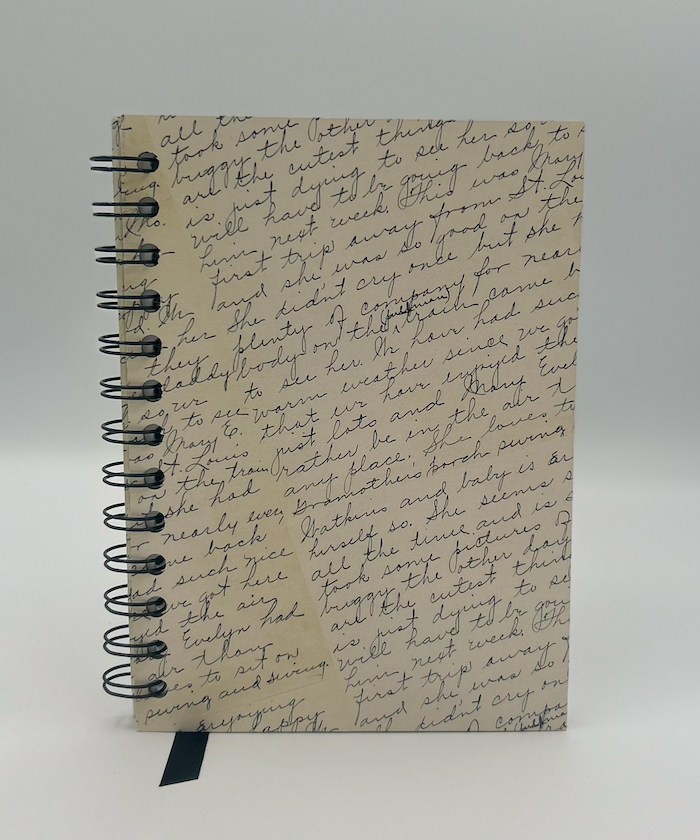 all the
took some
buggy the other
are the cutest things
is just dying to see her so
will have to be going back to
him next week. This was Mary
first trip away from St. Lou
and she was so good on the
her She didn't cry once but she
they plenty of company for near
daddy body on the train come b
(Wellman)
so to see her. We have had suc
to see warm weather since we go
as Mary E. that we have enjoyed the
St. Louis just lots and Mary Evel
on the train rather be in the air t
she had any place. She loves to
nearly every Grandmother's porch swing
me back Watkins and baby is
ad such nice herself so. She seems s
we got here all the time and is
yed the air took some pictures of
Evelyn had buggy the other day
air than are the cutest thing
es to sit on is just dying to se
swing and swing. will have to be goi
Enjoying him next week. Th
appy first trip away
and she was so
didn't cry on
of compa